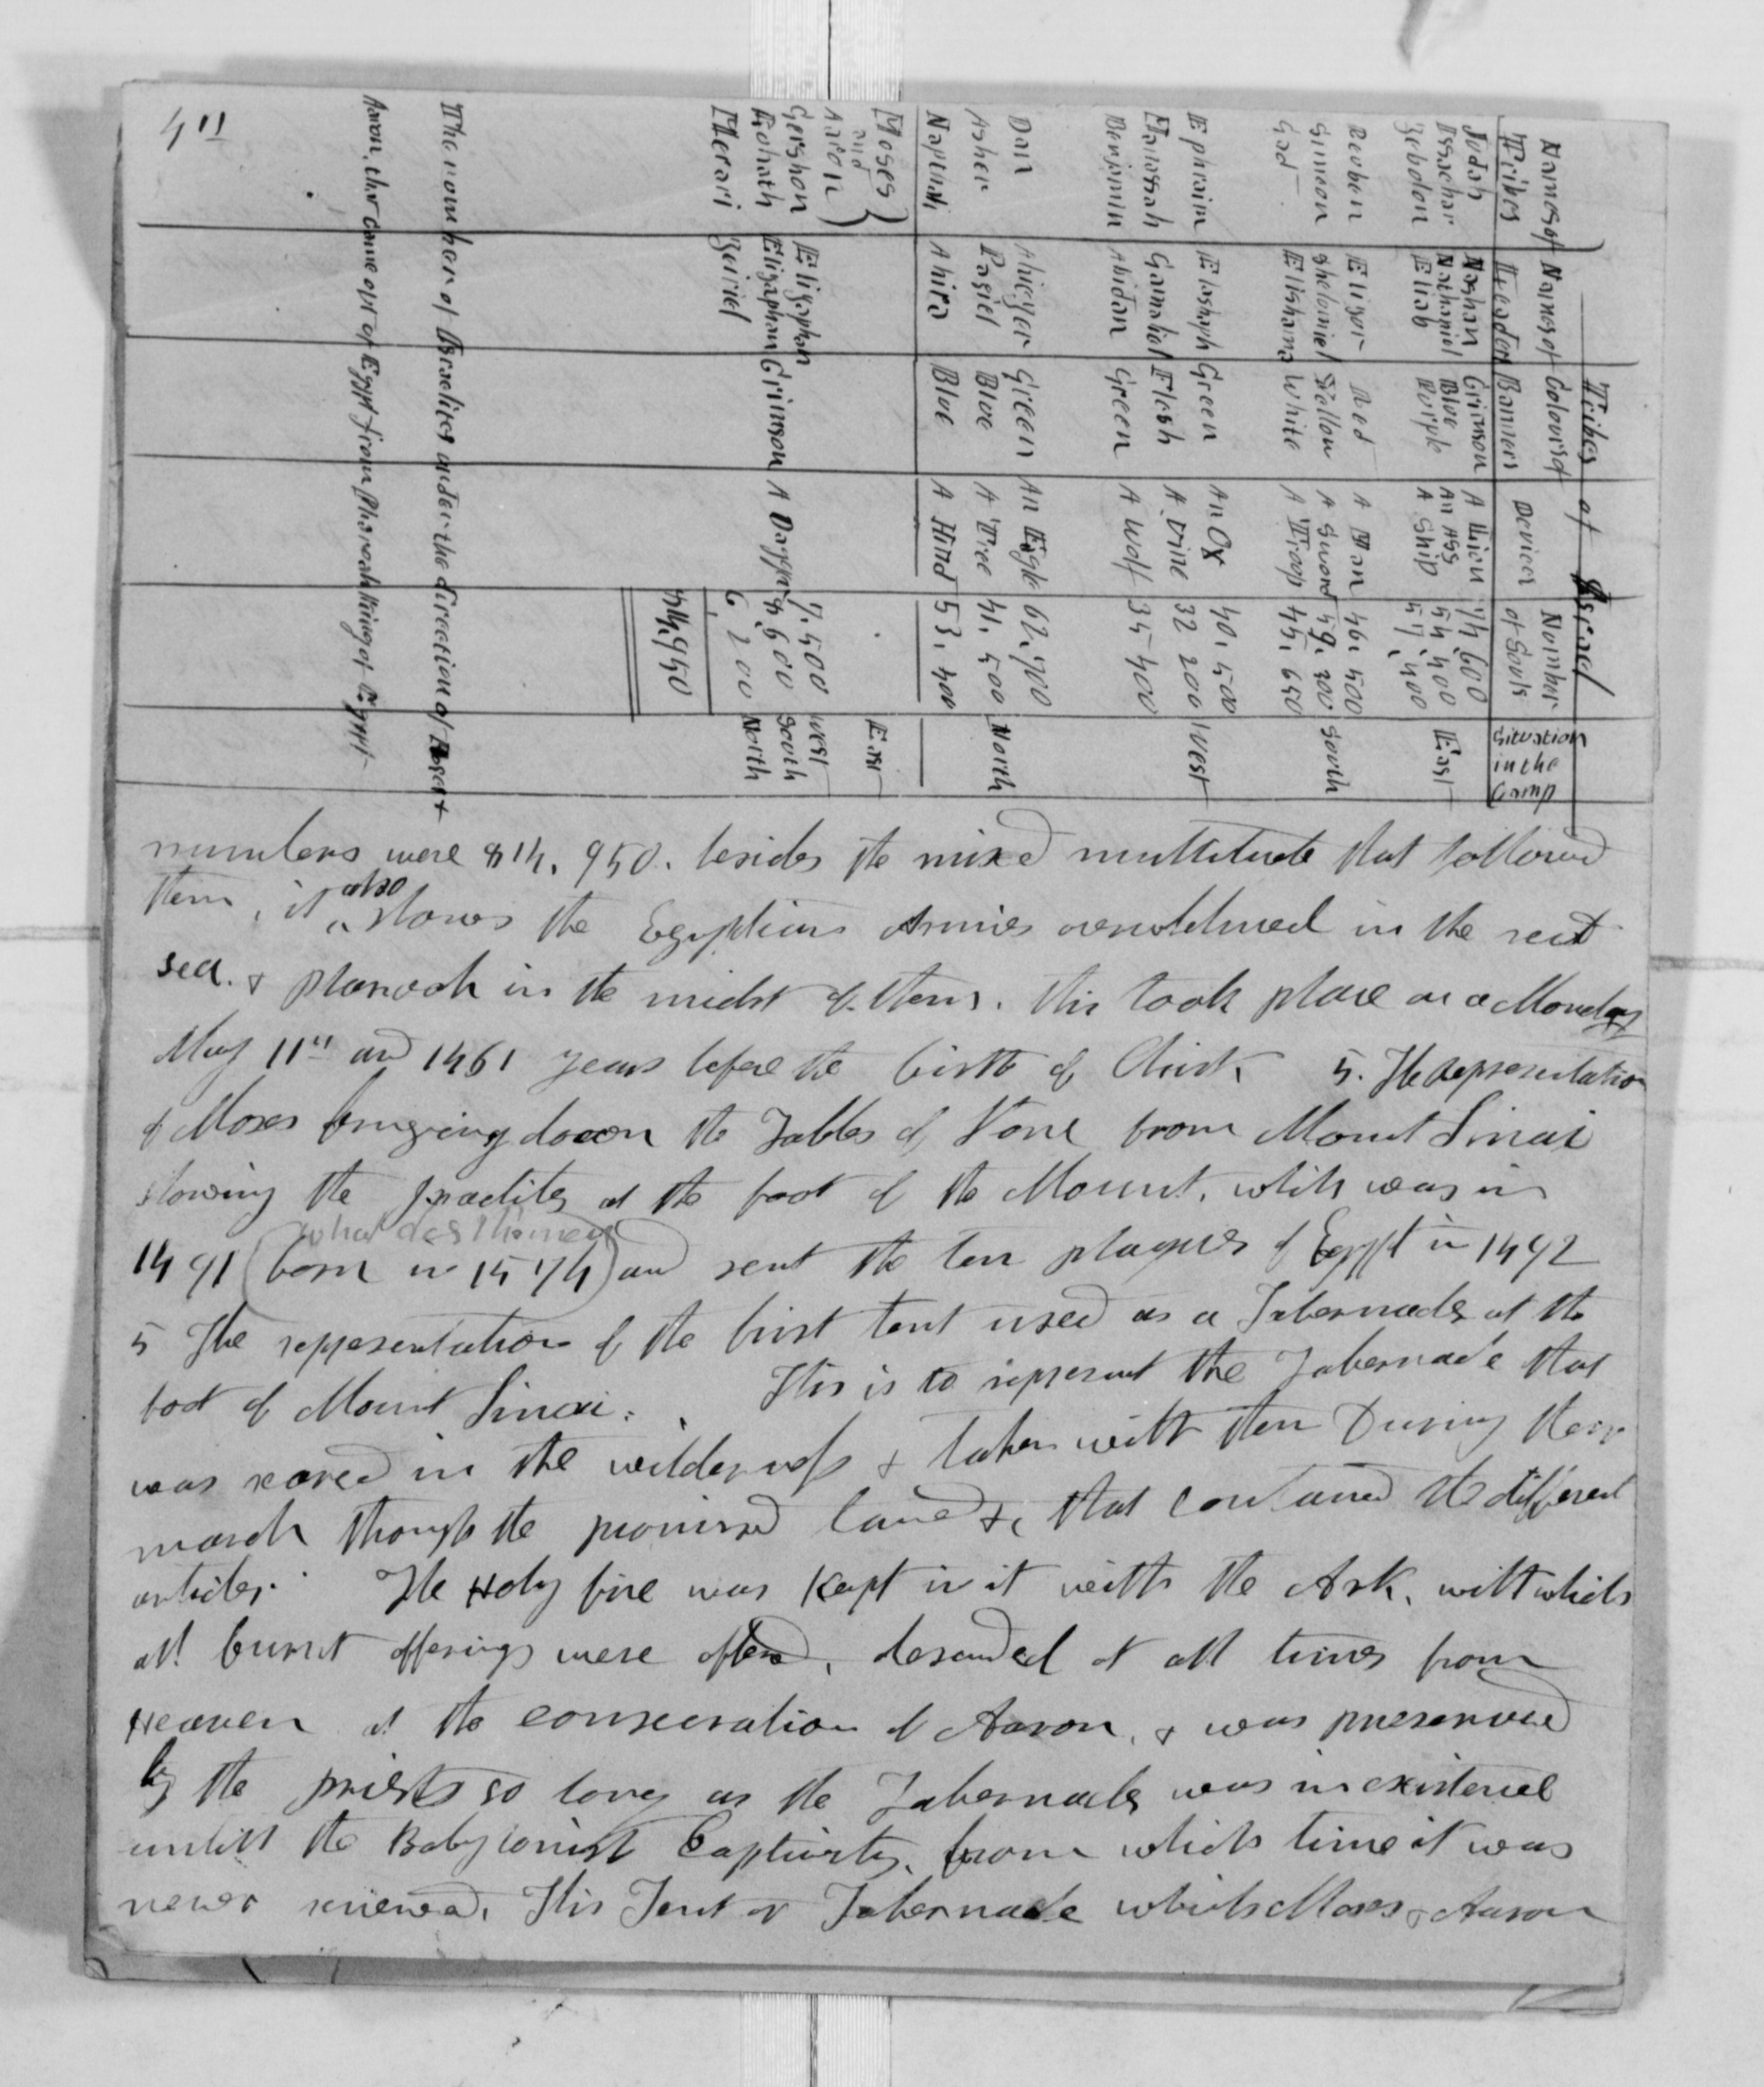 4"
Tribes of Israel
Names of Tribes | Names of Header | Colours of Banners | Devices | Number of Souls | Situation in the Camp
Judah | Nashan | Crimson | A Lion | 74,600
Issachar | Nathaniel | Blue | An Ass | 54,400 | East
Zebolon | Eliab | Purple | A Ship | 57,400
Reuben | Elizor | Red | A Man | 46,500
Simeon | Shelomiel | Yellow | A Sword | 59,300 | South
Gad | Elishama | White | A Troop | 45,650
Ephraim | Elashaph | Green | An Ox | 40,500
Manassah | Gamalial | Flesh | A Vine | 32 200 | West
Benjamin | Abidan | Green | A Wolf | 35 400
Dan | Ahiezer | Green | An Eagle | 62,700
Asher | Pagiel | Blue | A Tree | 41,500 | North
Napthali | Ahira | Blue | A Hind | 53,400
Moses and Aaron } | East
Gershon | Elizaphan | 7,500 | West
Kohath | Elizaphan | Crimson | A Dagger | 8,600 | South
Merari | Zuriel | 6,200 | North
814,950
The number of Israelites under the direction of Moses &
Aaron, that came out of Egypt from Pharoah King of Egypt
numbers were 814,950. besides the mixed multitude that followed
them, it also shows the Egyptians Armies overwhelmed in the red
sea. & Pharoah in the midst of them. this took place on a Monday
May 11" and 1461 years before the birth of Christ. 5. The representation
of Moses bringing down the Tables of Stone from Mount Sinai
showing the Israelites at the foot of the Mount, which was in
what does this mean
1491 (born in 1574) and sent the ten plagues of Egypt in 1492
5 The representation of the first tent used as a Tabernacle at the
foot of Mount Sinai. This is to represent the Tabernacle that
was reared in the wilderness & taken with them During their
march through the promised land &c that contained the different
articles. The Holy fire was Kept in it with the Ark, with which
all burnt offerings were offered, desended at all times from
Heaven at the conseceration of Aaron, & was preserved
by the priests so long as the Tabernacle was in existence
untill the Babylonish Captivity, from which time it was
never renewed. This Tent or Tabernacle which Moses & Aaron